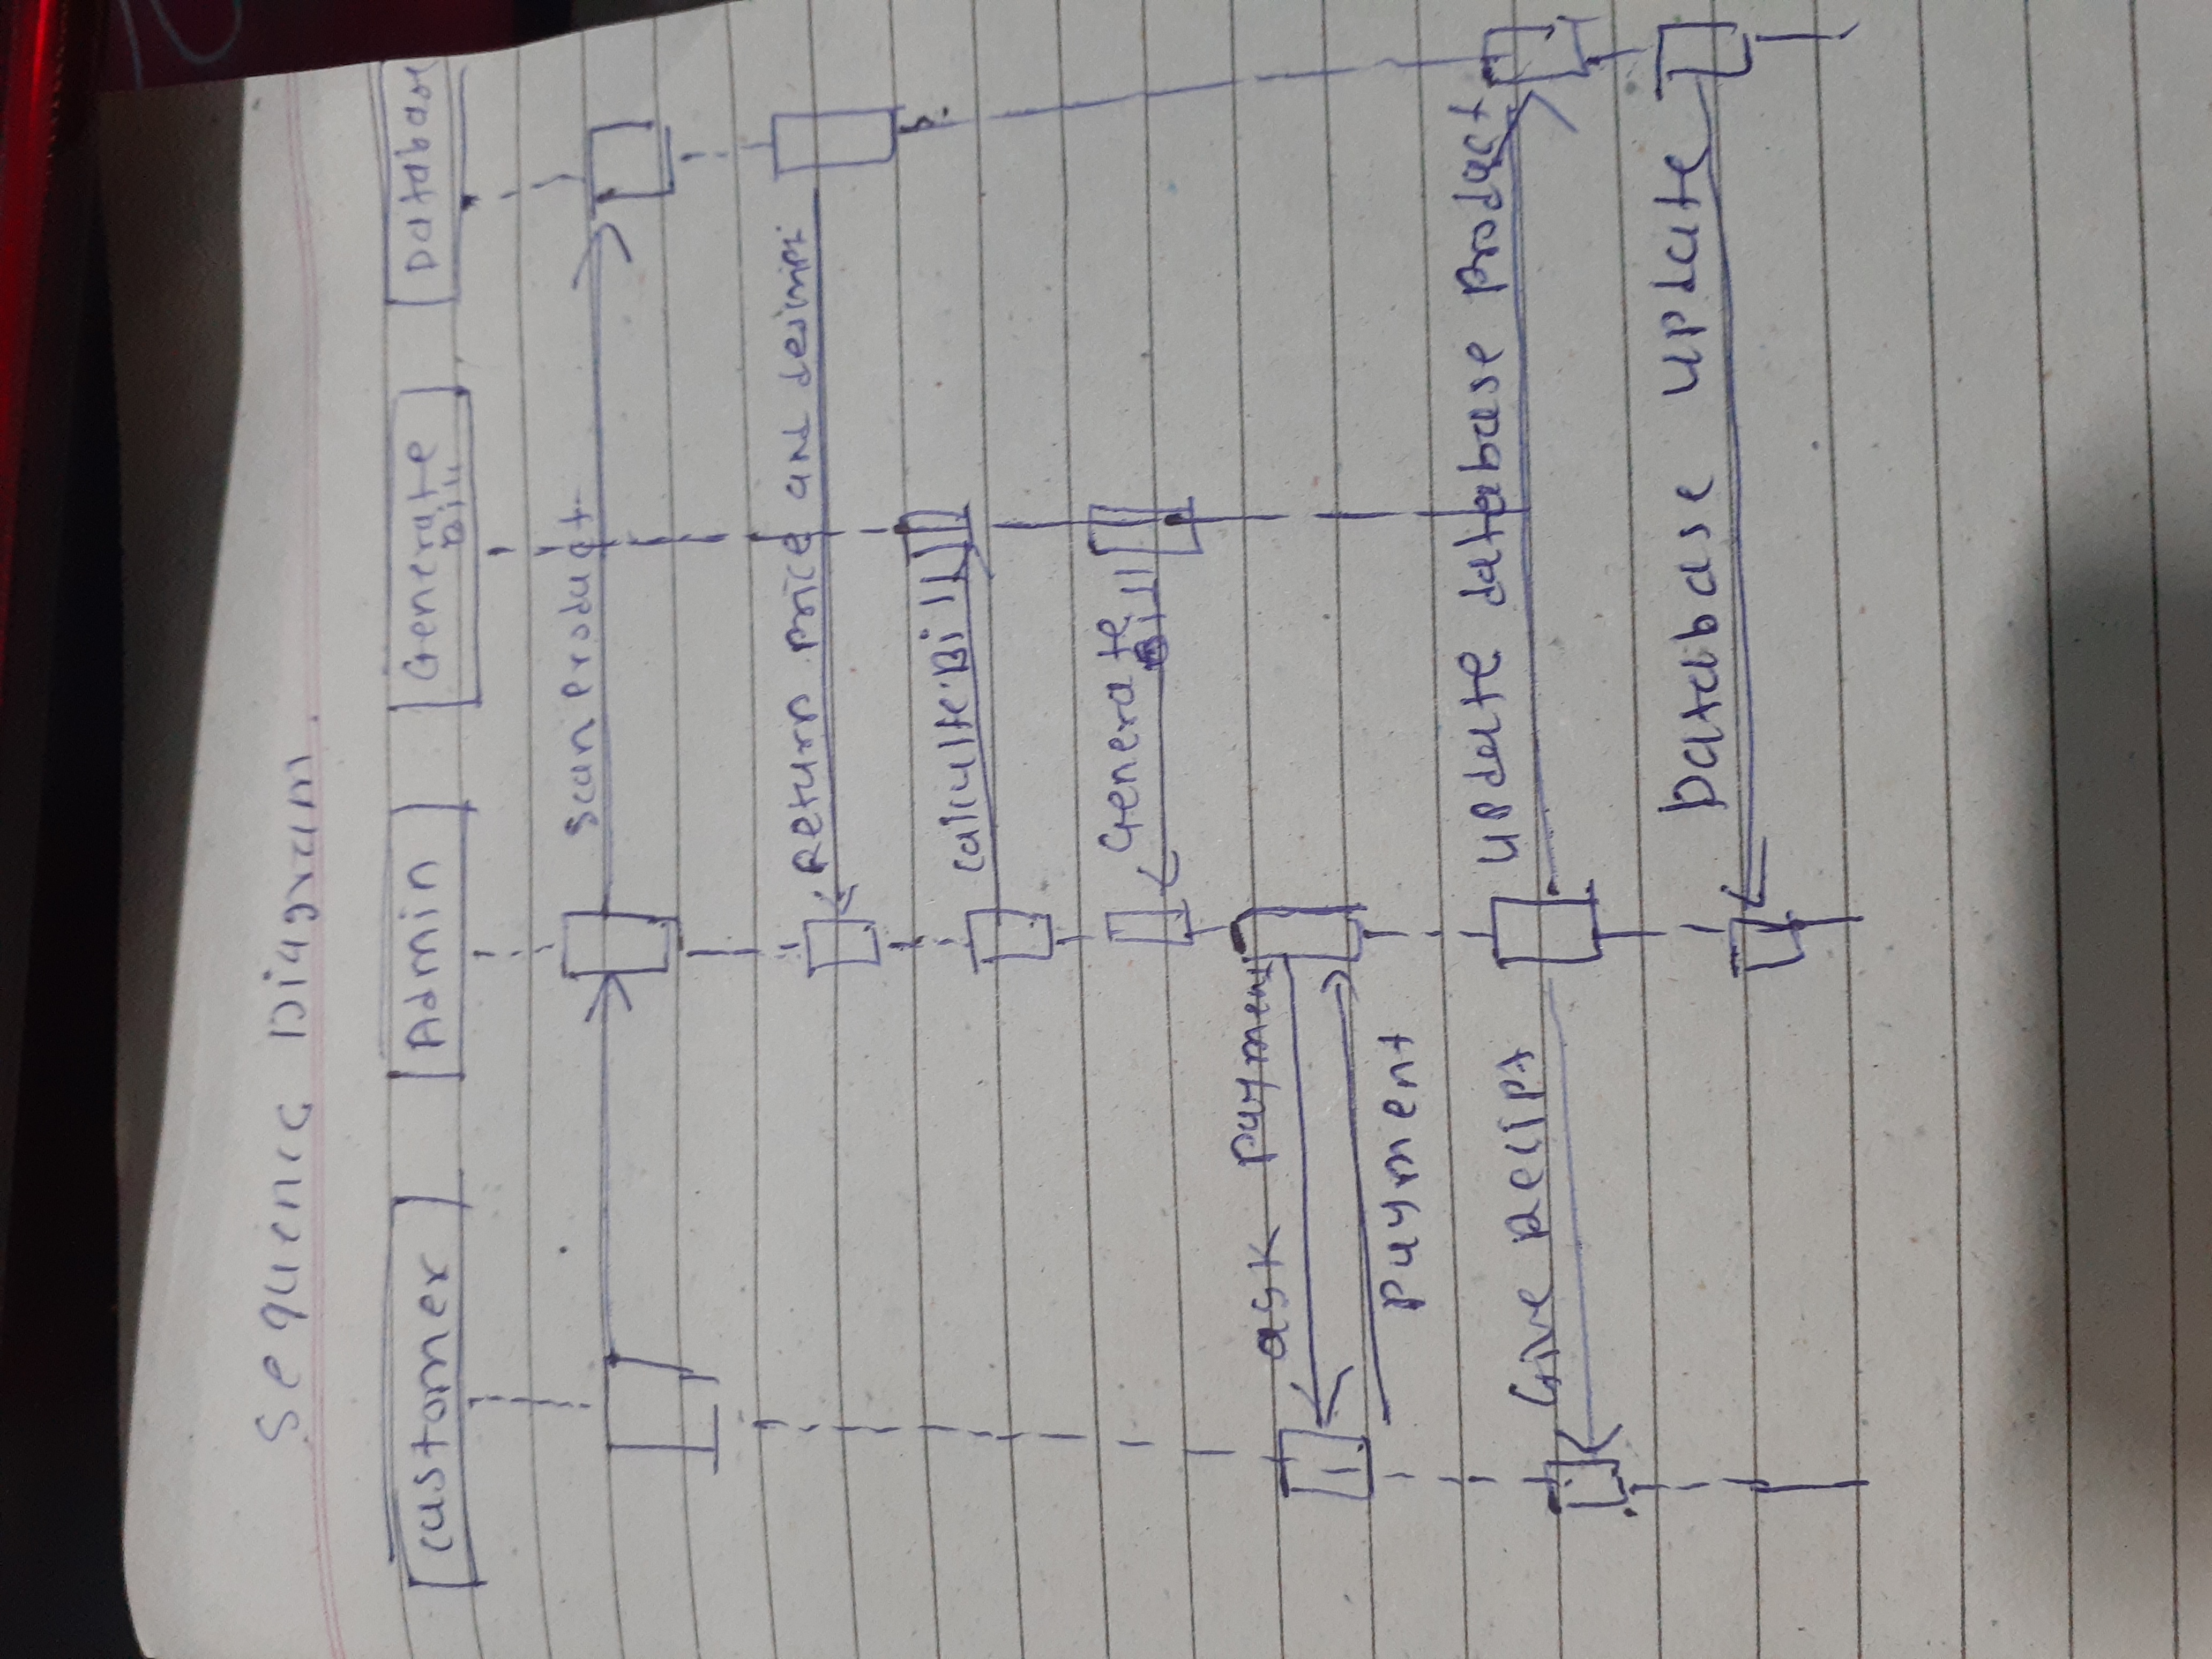 Sequence Diagram.
Customer Admin Generate Bill Database
Scan Product
Return Price and
Calculte Bill
Generate Bill
ask Payment
Payment
Give Recipt update database Product
Database update